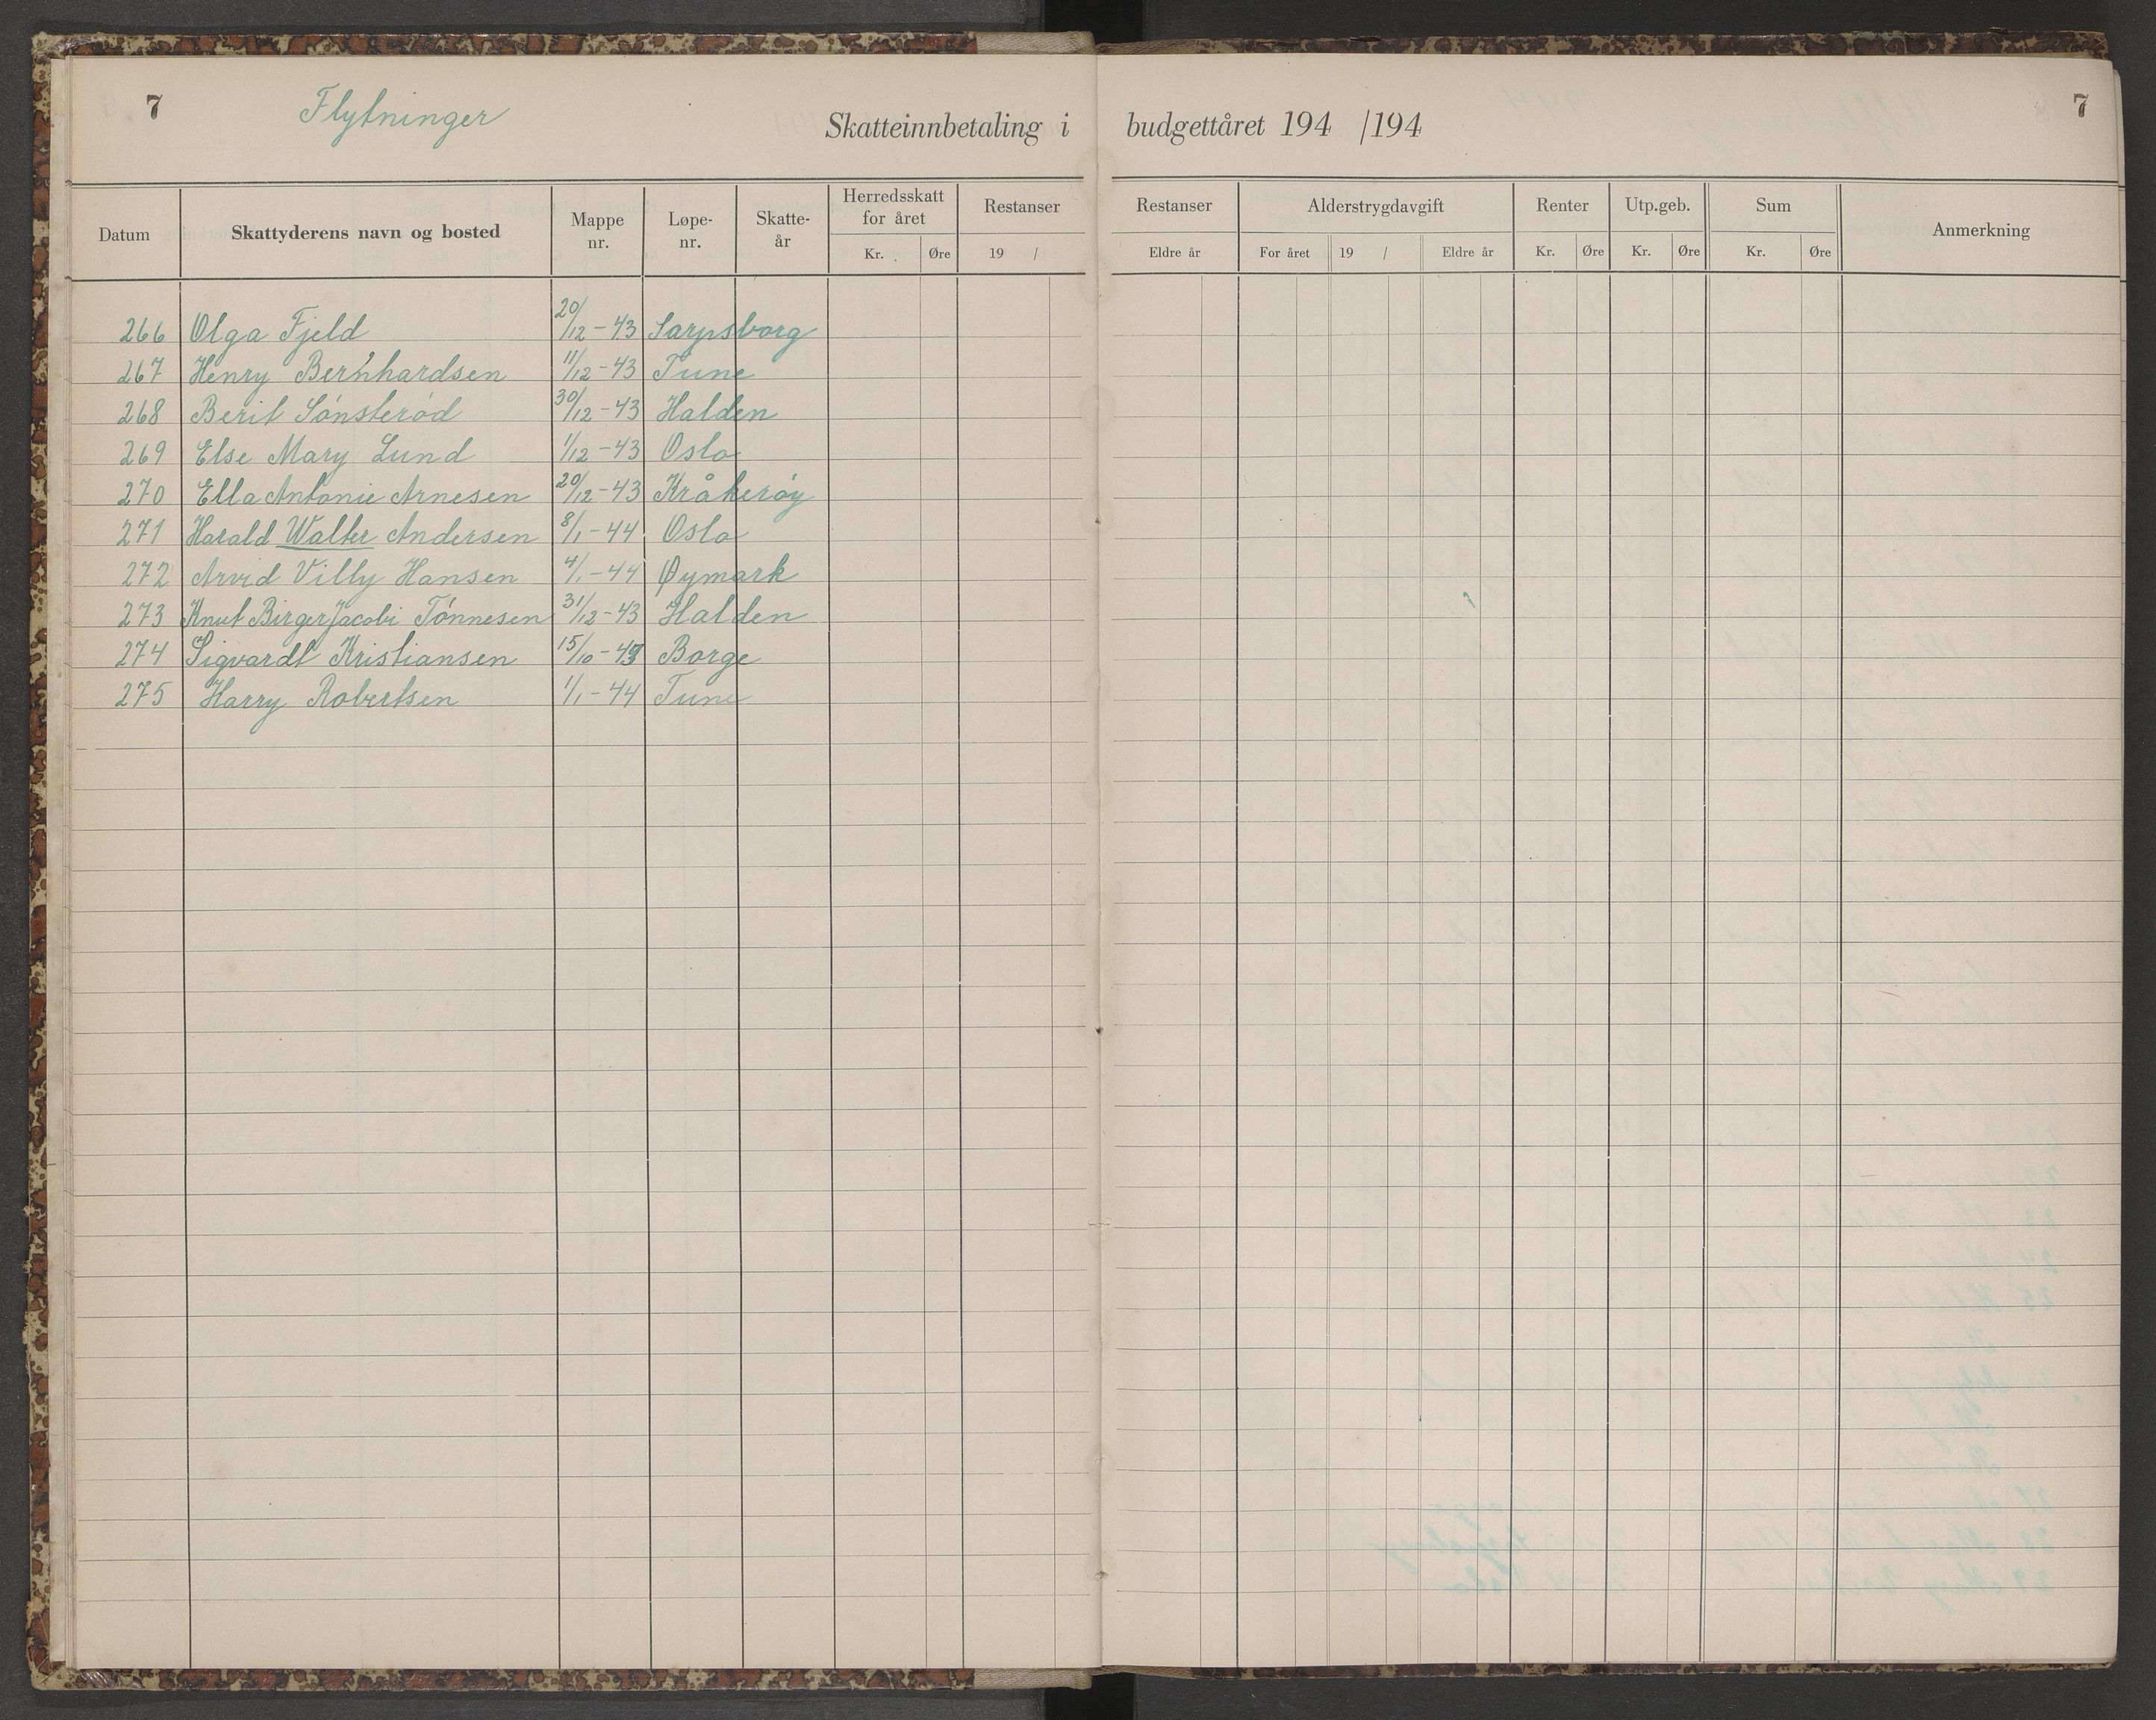 7 Flytninger Skatteinnbetaling i budgettåret 194 /194 7
Datum Skattyderens navn og bosted Mappe nr. Løpe-nr. Skatte-år Herredsskatt for året Kr. Øre Restanser 19 / Restanser Eldre år Alderstrygdavgift For året 19 / Eldre år Renter Kr. Øre Utp.geb. Kr. Øre Sum Kr. Øre Anmerkning
266 Olga Fjeld 20/12-43 Sarpsborg
267 Henry Bernhardsen 11/12-43 Tune
268 Berit Sónsteród 30/12-43 Halden
269 Else Mary Lund 1/12-43 Oslo
270 Ella Antonie Arnesen 20/12-43 Kråkeróy
271 Harald Walter Andersen 8/1-44 Oslo
272 Arvid Villy Hansen 4/1-44 Øymark
273 Knut Birger Jacobi Tónnesen 31/12-43 Halden
274 Sigvardt Kristiansen 15/10-43 Borge
275 Harry Robertsen 1/1-44 Tune